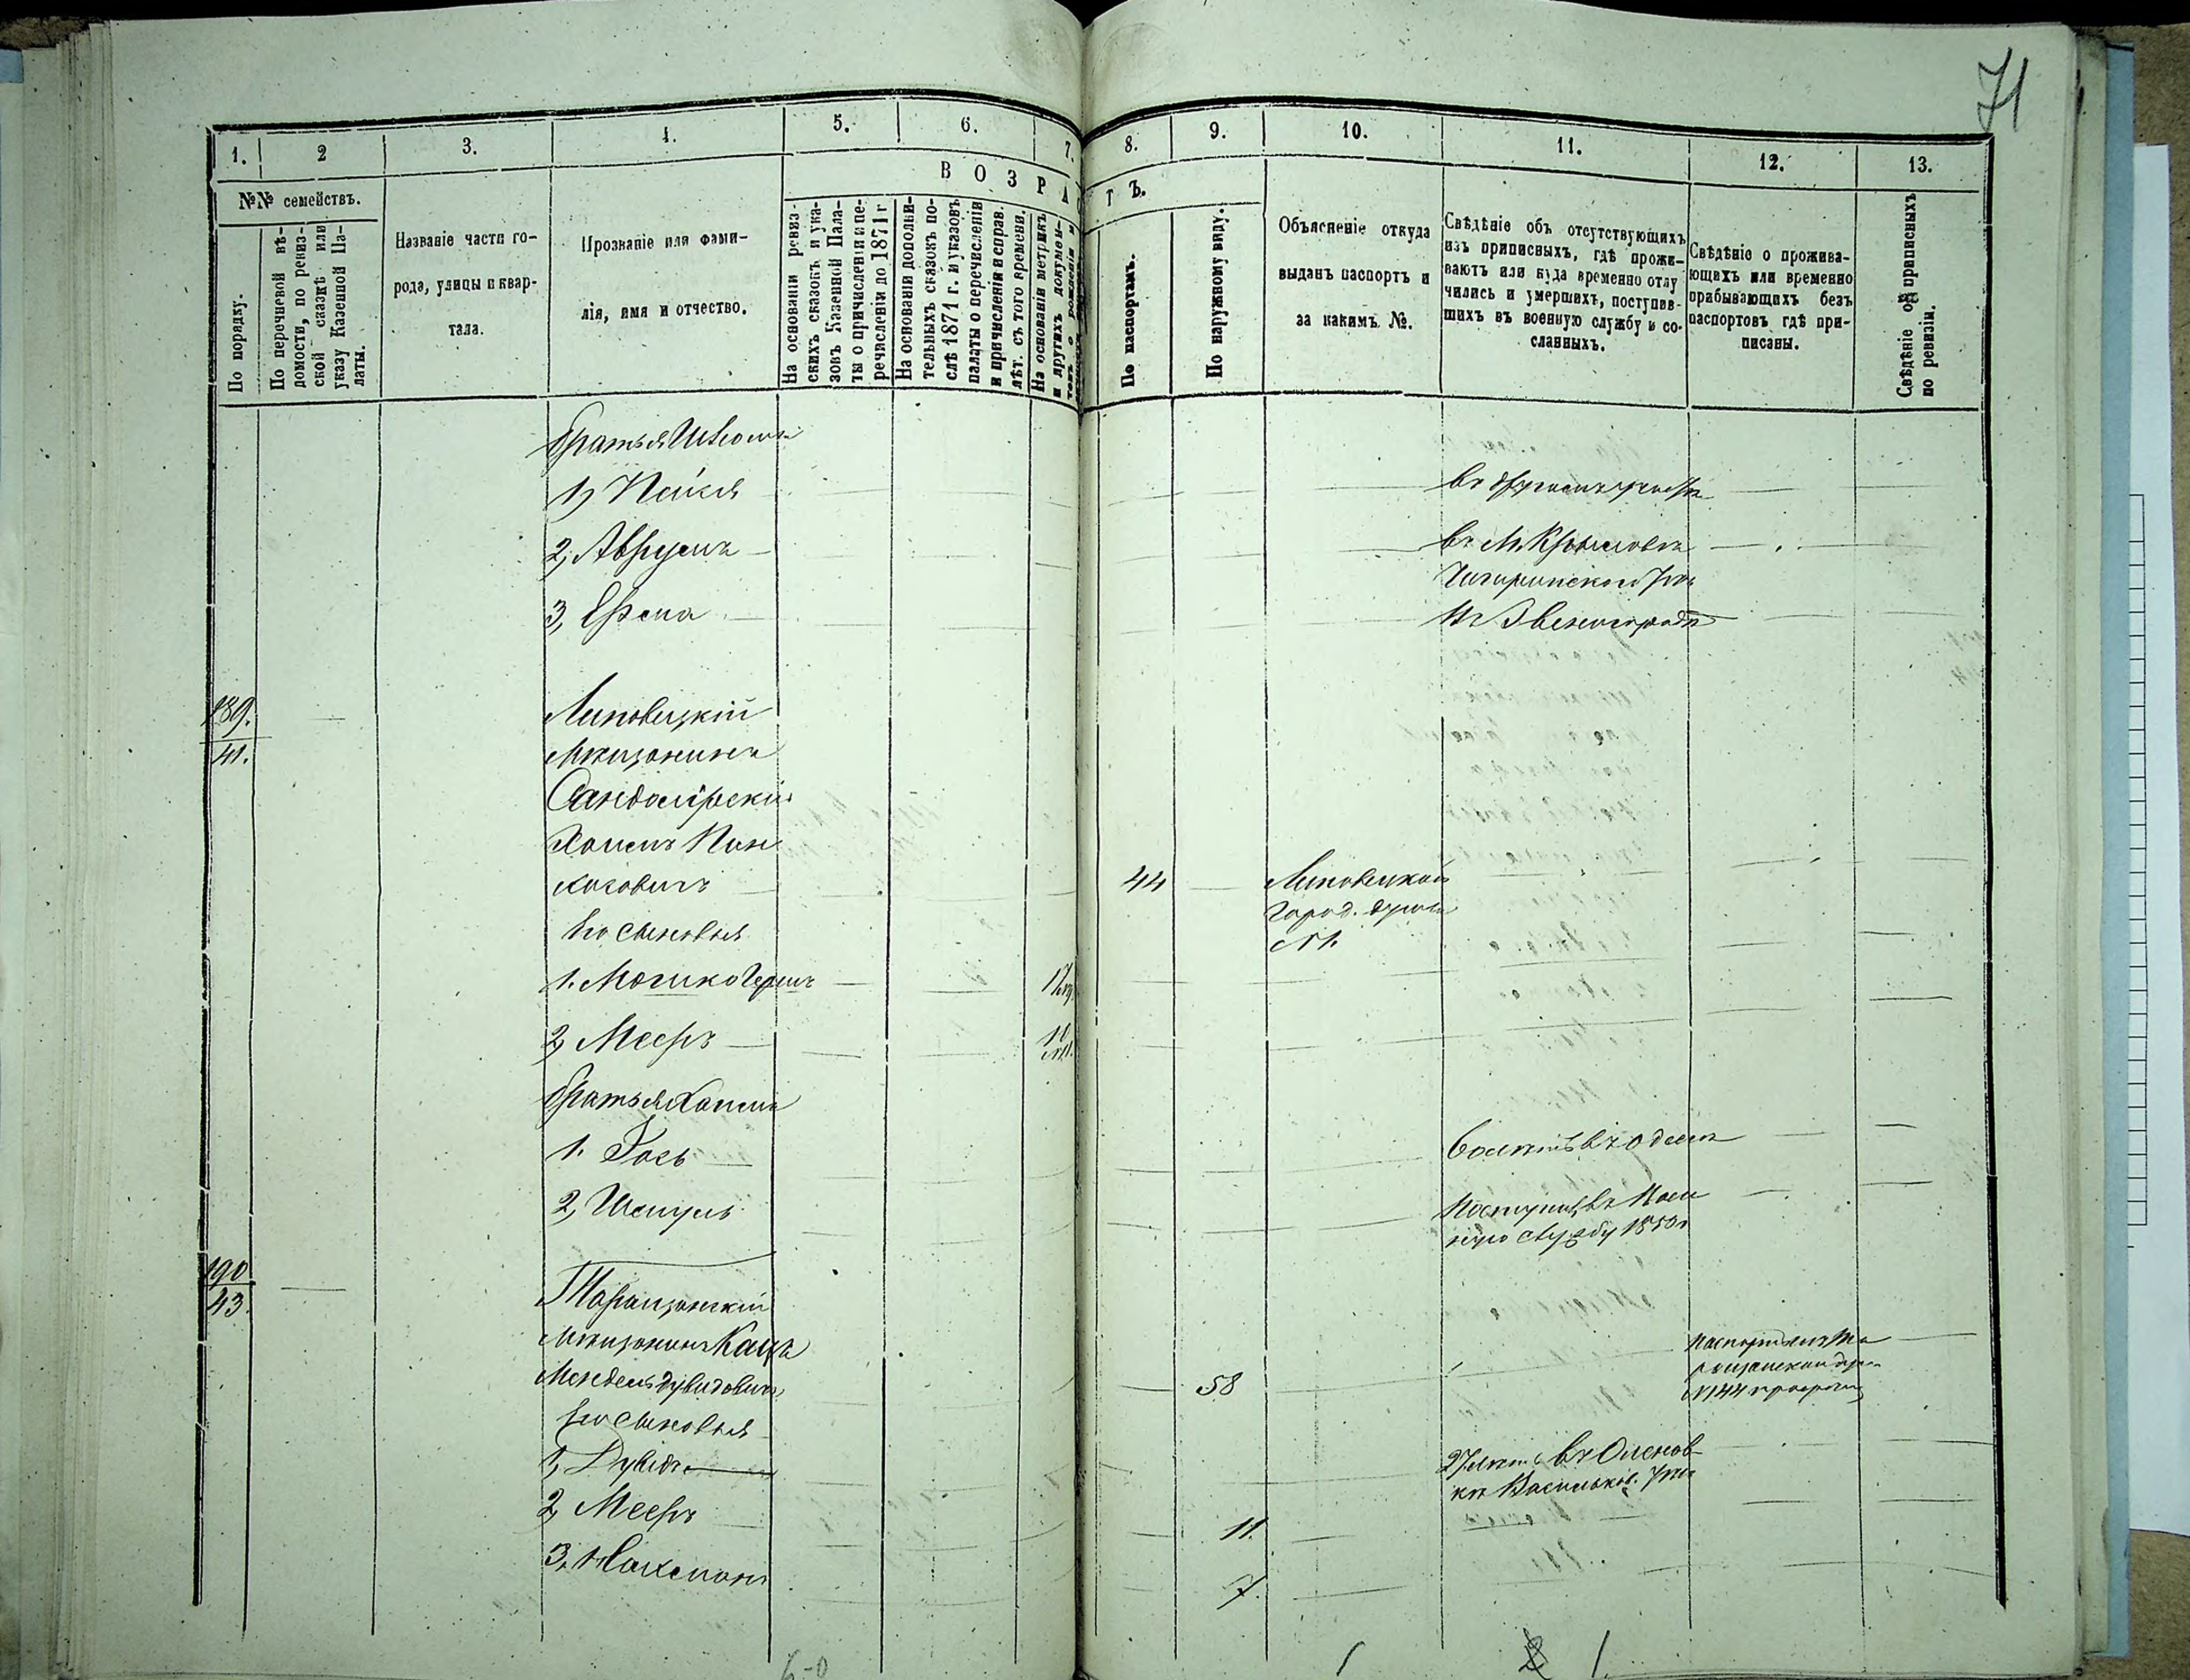 71
1. 2 3. 4. 5. 6. 7. 8. 9. 10. 11. 12. 13.
№№ семействъ.
В О З Р А Т Ъ.
По порядку.
По перечневой вѣ-
домости, по ревиз-
ской сказкѣ или
указу Казенной Па-
латы.
Названіе части го-
рода, улицы и квар-
тала.
Прозваніе или фами-
лія, имя и отчество.
На основаніи ревиз-
скихъ сказокъ и ука-
зовъ Казенной Пала-
ты о причисленіи и пе-
речисленіи до 1871 г
На основаніи дополни-
тельныхъ сказокъ по-
слѣ 1871 г. и указовъ
палаты о перечисленіи
и причисленіи и справ.
лѣт. съ того времени.
На основаніи метрикъ
и другихъ докумен-
товъ о рожденіи и
По паспортамъ.
По наружному виду.
Объясненіе откуда
выданъ паспортъ и
за какимъ №.
Свѣдѣніе объ отсутствующихъ
изъ приписныхъ, гдѣ прожи-
ваютъ или куда временно отлу
чились и умершихъ, поступив-
шихъ въ военную службу и со-
сланныхъ.
Свѣдѣніе о прожива-
ющихъ или временно
прибывающихъ безъ
паспортовъ гдѣ при-
писаны.
Свѣдѣніе оъ приписныхъ
по ревизіи.
Братья
1,
2, Аврумъ
въ М. Крыловѣ
Чигиринского Уѣз
3, Ефема
Въ Звенигородкѣ
189.
41.
Липовецкій
Мѣщанинъ
Сандомірскій
Хаимъ Пин
хасовичъ
44
Липовецкой
Город. думы
№ 1.
Его сыновья
1. Мошко Герш
2, Мееръ
Братья Хаима
1. Іось
въ Одессѣ
2, Шмуль
Поступилъ въ Воен
ную службу
190
43.
Таращанскій
Мѣщанинъ Кацъ
Мендель Дувидовичъ
58
№ 144
Его сыновья
1, Дувидъ
27 лѣтъ въ Оленов-
кѣ Васильков. Уѣз
2, Мееръ
11.
3, Нахманъ
7.